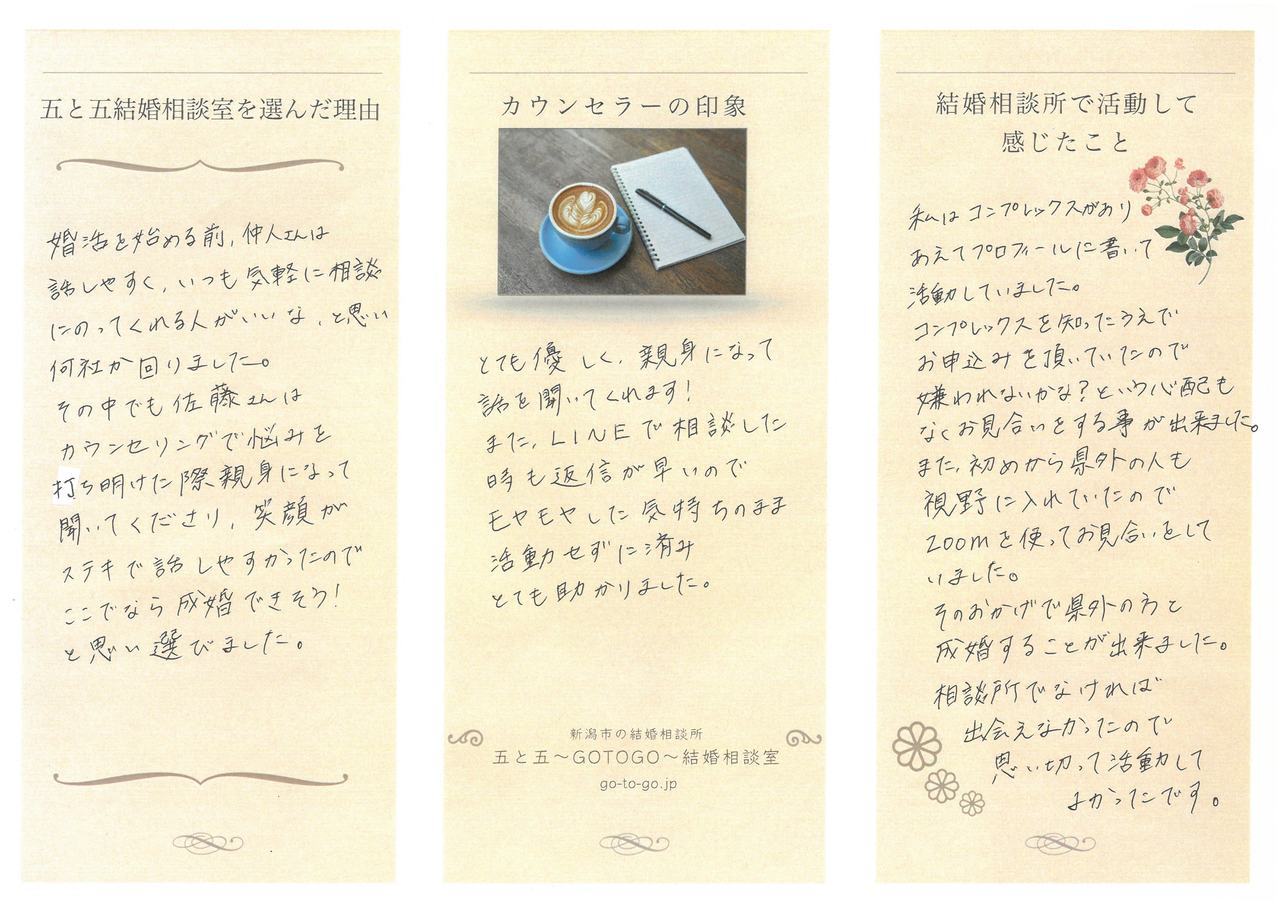 五と五結婚相談室を選んだ理由
婚活を始める前、仲人さんは
話しやすく、いつも気軽に相談
にのってくれる人がいいな、と思い
何社か回りました。
その中でも佐藤さんは
カウンセリングで悩みを
打ち明けた際親身になって
聞いてくださり、笑顔が
ステキで話しやすかったので
ここでなら成婚できそう！
と思い選びました。
カウンセラーの印象
とても優しく、親身になって
話を聞いてくれます！
また、LINEで相談した
時も返信が早いので
モヤモヤした気持ちのまま
活動せずに済み
とても助かりました。
新潟市の結婚相談所
五と五～GOTOGO～結婚相談室
go-to-go.jp
結婚相談所で活動して
感じたこと
私はコンプレックスがあり
あえてプロフィールに書いて
活動していました。
コンプレックスを知ったうえで
お申込みを頂いていたので
嫌われないかな？という心配も
なくお見合いをする事が出来ました。
また、初めから県外の人も
視野に入れていたので
zoomを使ってお見合いをして
いました。
そのおかげで県外の方と
成婚することが出来ました。
相談所でなければ
出会えなかったので
思い切って活動して
よかったです。